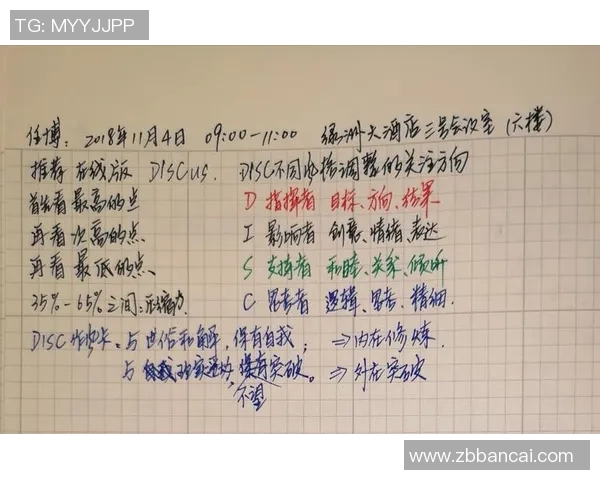 TG: MYYJJPP
任博: 2018年11月4日 09:00-11:00 绿洲大酒店三号会议室(六楼)
推荐在线版 DISCUS. DISC不同风格调整的关注方向
首先看最高的点 D 指挥者 目标、方向、结果
再看次高的点 I 影响者 创意、情绪、表达
再看最低的点 S 支持者 和睦、关系、倾听
35%-65%之间: C 思考者 逻辑、思考、精细.
DISC 与世俗和解,保有自我; ⇒内在修炼
与 突破。⇒外在突破
不望
www.zbbancai.com